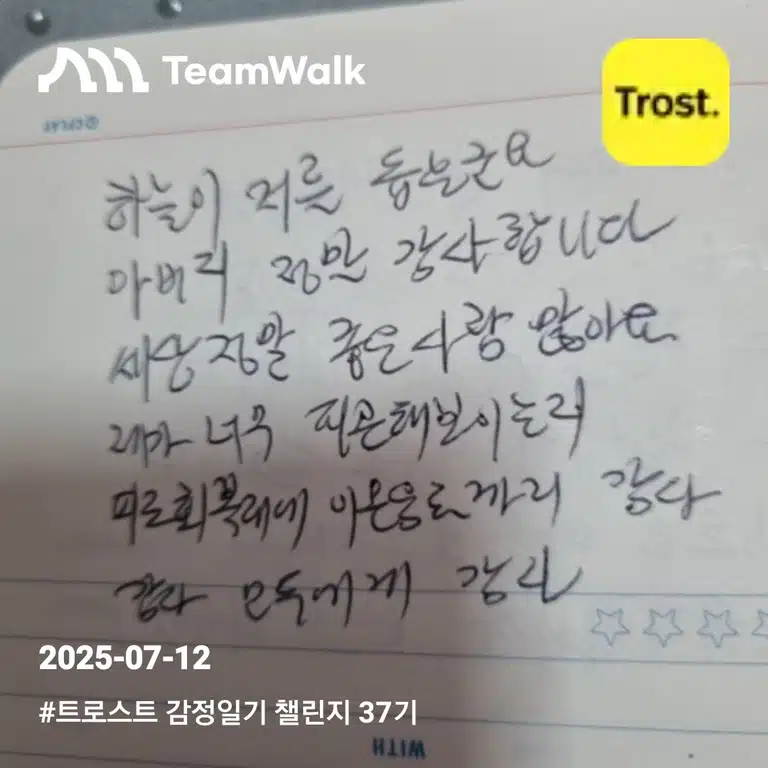 TeamWalk
Trost.
하늘이 저를 돕는군요
아버지 정말 감사합니다
세상 정말 좋은사람 많아요
제가 너무 피곤해보이는지
피로회복제에 이온음료까지 감사
감사 모두에게 감사
WITH
2025-07-12
#트로스트 감정일기 챌린지 37기